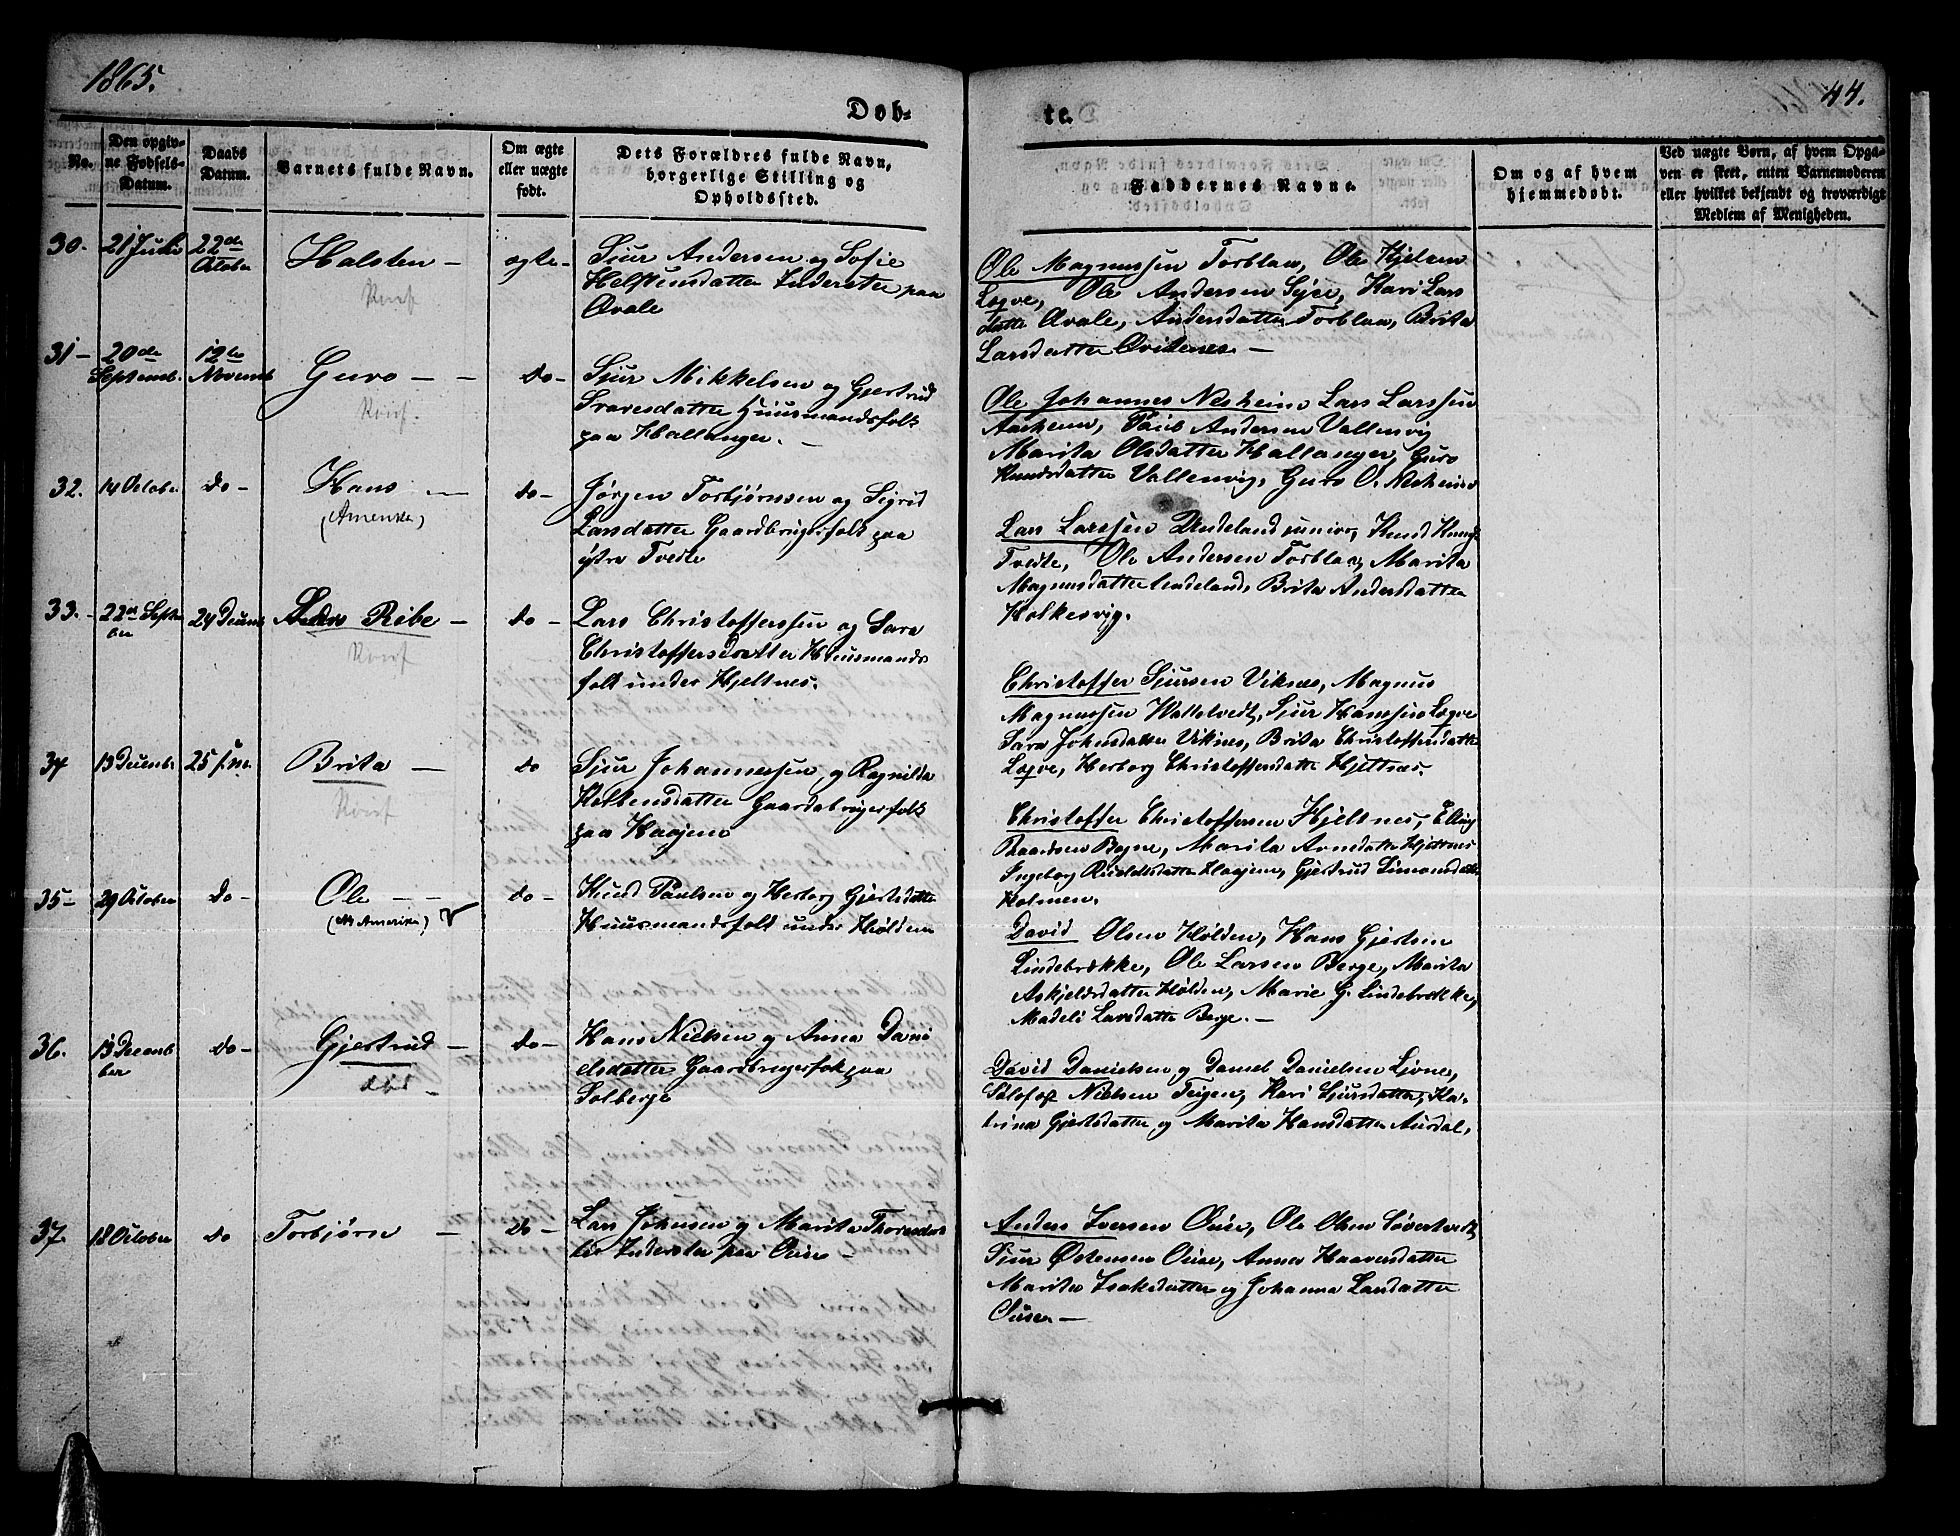 1865.
44.
Døb-
te.
No.
Den opgiv-
ne Fødsels-
Datum.
Daabs
Datum.
Barnets fulde Navn.
Om ægte
eller uægte
født.
Dets Forældres fulde Navn,
borgerlige Stilling og
Opholdssted.
Faddernes Navne.
Om og af hvem
hjemmedøbt.
Ved uægte Børn, af hvem Opga-
ven er skeet, enten Barnemoderen
eller hvilket bekjendt og troværdigt
Medlem af Menigheden.
30.
22de
October
Halsten -
ægte -
Sjur Andersen og Sofie
Inderster paa
Ovale
Ole Magnussen Torblaa, Ole
Ole Andersen Kari Lars
datter Ovale, Andersdatter Torblaa, Brita
Larsdatter
31 -
20de
Septemb.
12te
Novemb
Guro - -
do -
Sjur Mikkelsen og Gjertrud
Huusmandsfolk
paa Hallanger. -
Ole Johannes Nesheim Lars Larssen
Aasheim, Andersen Vallenvig
Marita Olsdatter Hallanger, Guro
Knudsdatter Vallenvig, Guro O. Nesheim
32.
14 October
do -
Hans -
(Amerika)
do -
Jørgen Torbjørnsen og Sigrid
Larsdatter Gaardbrugerfolk paa
ystre Tvedte
Lars Larssen Undeland junior, Knud
Tvedte, Ole Andersen Torblaa, Marita
Magnusdatter Undeland, Brita Andersdatter
Holkesvig.
33. -
22de Septem
ber
24 Decemb
Ribe -
do -
Lars Christoffersen og Sara
Christoffersdatter Huusmands
folk under Hjeltnes.
Christoffer Sjursen Viknes, Magnus
Magnussen Sjur Hanssen Legve
Sara Johnsdatter Viknes, Brita Christoffersdatter
Legve, Herborg Christoffersdatter Hjeltnes.
34
13 December
Brita -
do
Sjur Johannessen og Ragnilda
Gaardsbrugerfolk
paa Haajem
Christoffer Christoffersen Hjeltnes, Elling
Baardsen Bagne, Marita Arnedatter Hjeltnes
Ingeborg Haajem, Gjertrud Simonsdatter
Holmen.
35 -
29 October
do -
Ole - -
(Amerika)
do -
Knud Paulsen og Herborg Gjertsdatter
Huusmandsfolk under Hølden
David Olsen Hølden, Hans Gjertsen
Lindebrække, Ole Larsen Berge, Marita
Askjelsdatter Hølden, Marie G. Lindebrække,
Madeli Larsdatter Berge. -
36.
13 Decem
ber
do -
Gjertrud -
død -
do -
Hans Nielsen og Anna Dani
elsdatter Gaardbrugerfolk paa
Solberge
David Danielsen og Daniel Danielsen Ljone,
Nielsen Teigen, Kari Sjursdatter, Ka-
trina Gjertsdatter og Marita Hansdatter Aursdal,
37.
18 October
do
Torbjørn -
do -
Lars Johnsen og Marita
ter Inderster paa
Anders Iversen Ouse, Ole Olsen
Sjur Østensen Ouse, Anna Haaversdatter
Marita Isaksdatter og Johanna Larsdatter
Ousen -